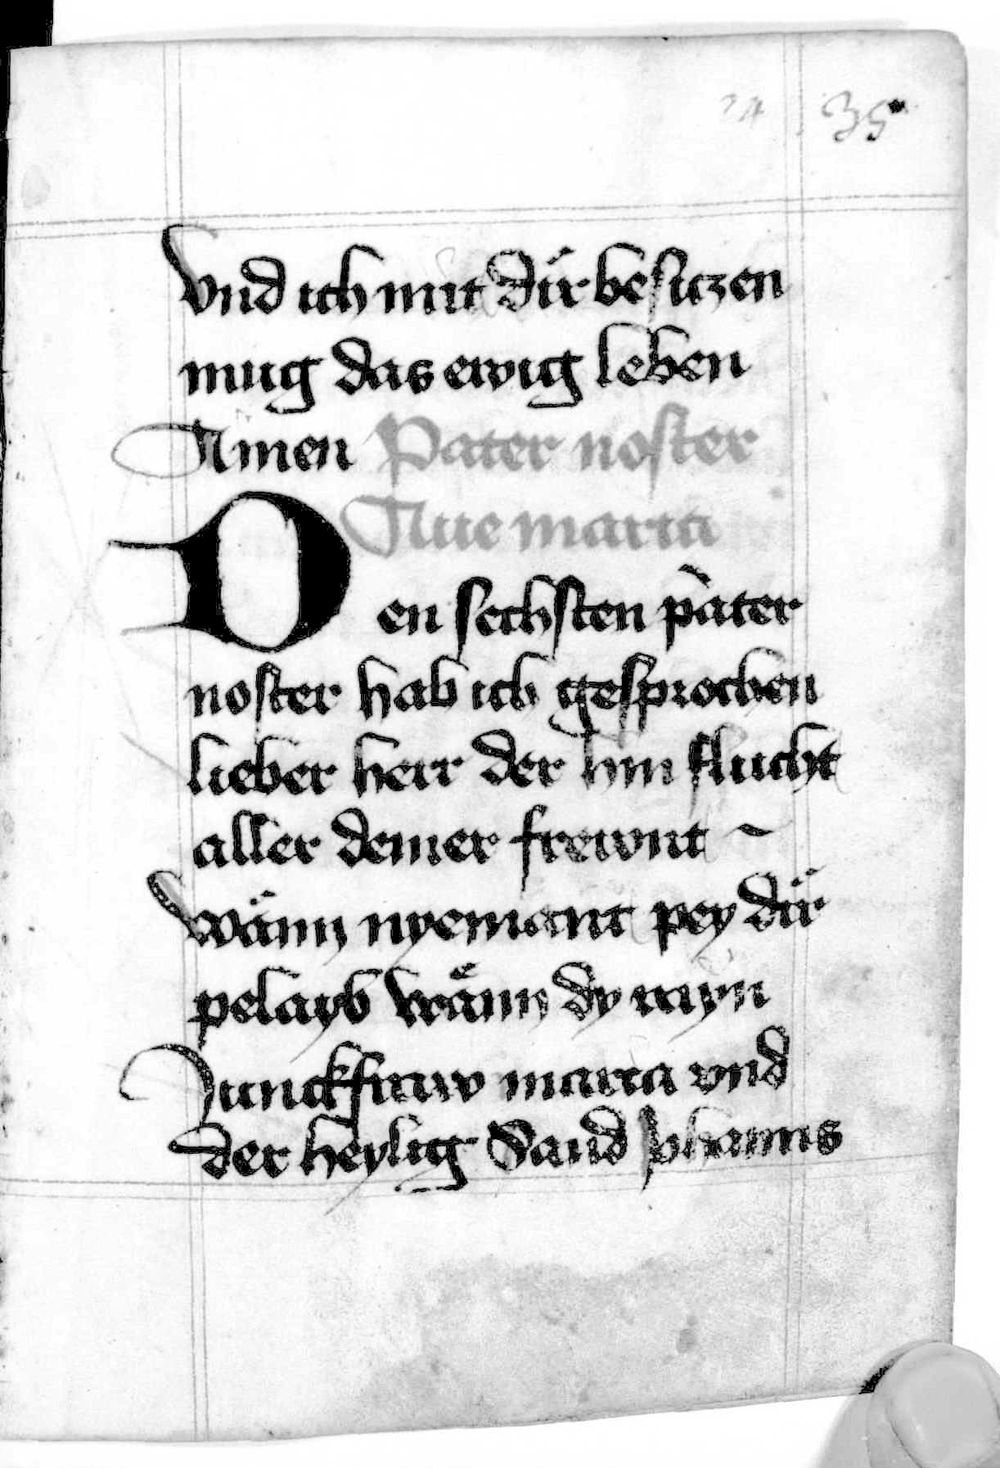 35
vnd ich mit dir besitzen
mug das ewig leben
Amen Pater noster
Aue maria
Den sechsten pater
noster hab ich gesprochen
lieber herr der hin flucht
aller deiner frewnt ~
wänn nyemant pey dir
pelayb wänn dy rayn
Junckfraw maria vnd
der heylig Sand Johanns